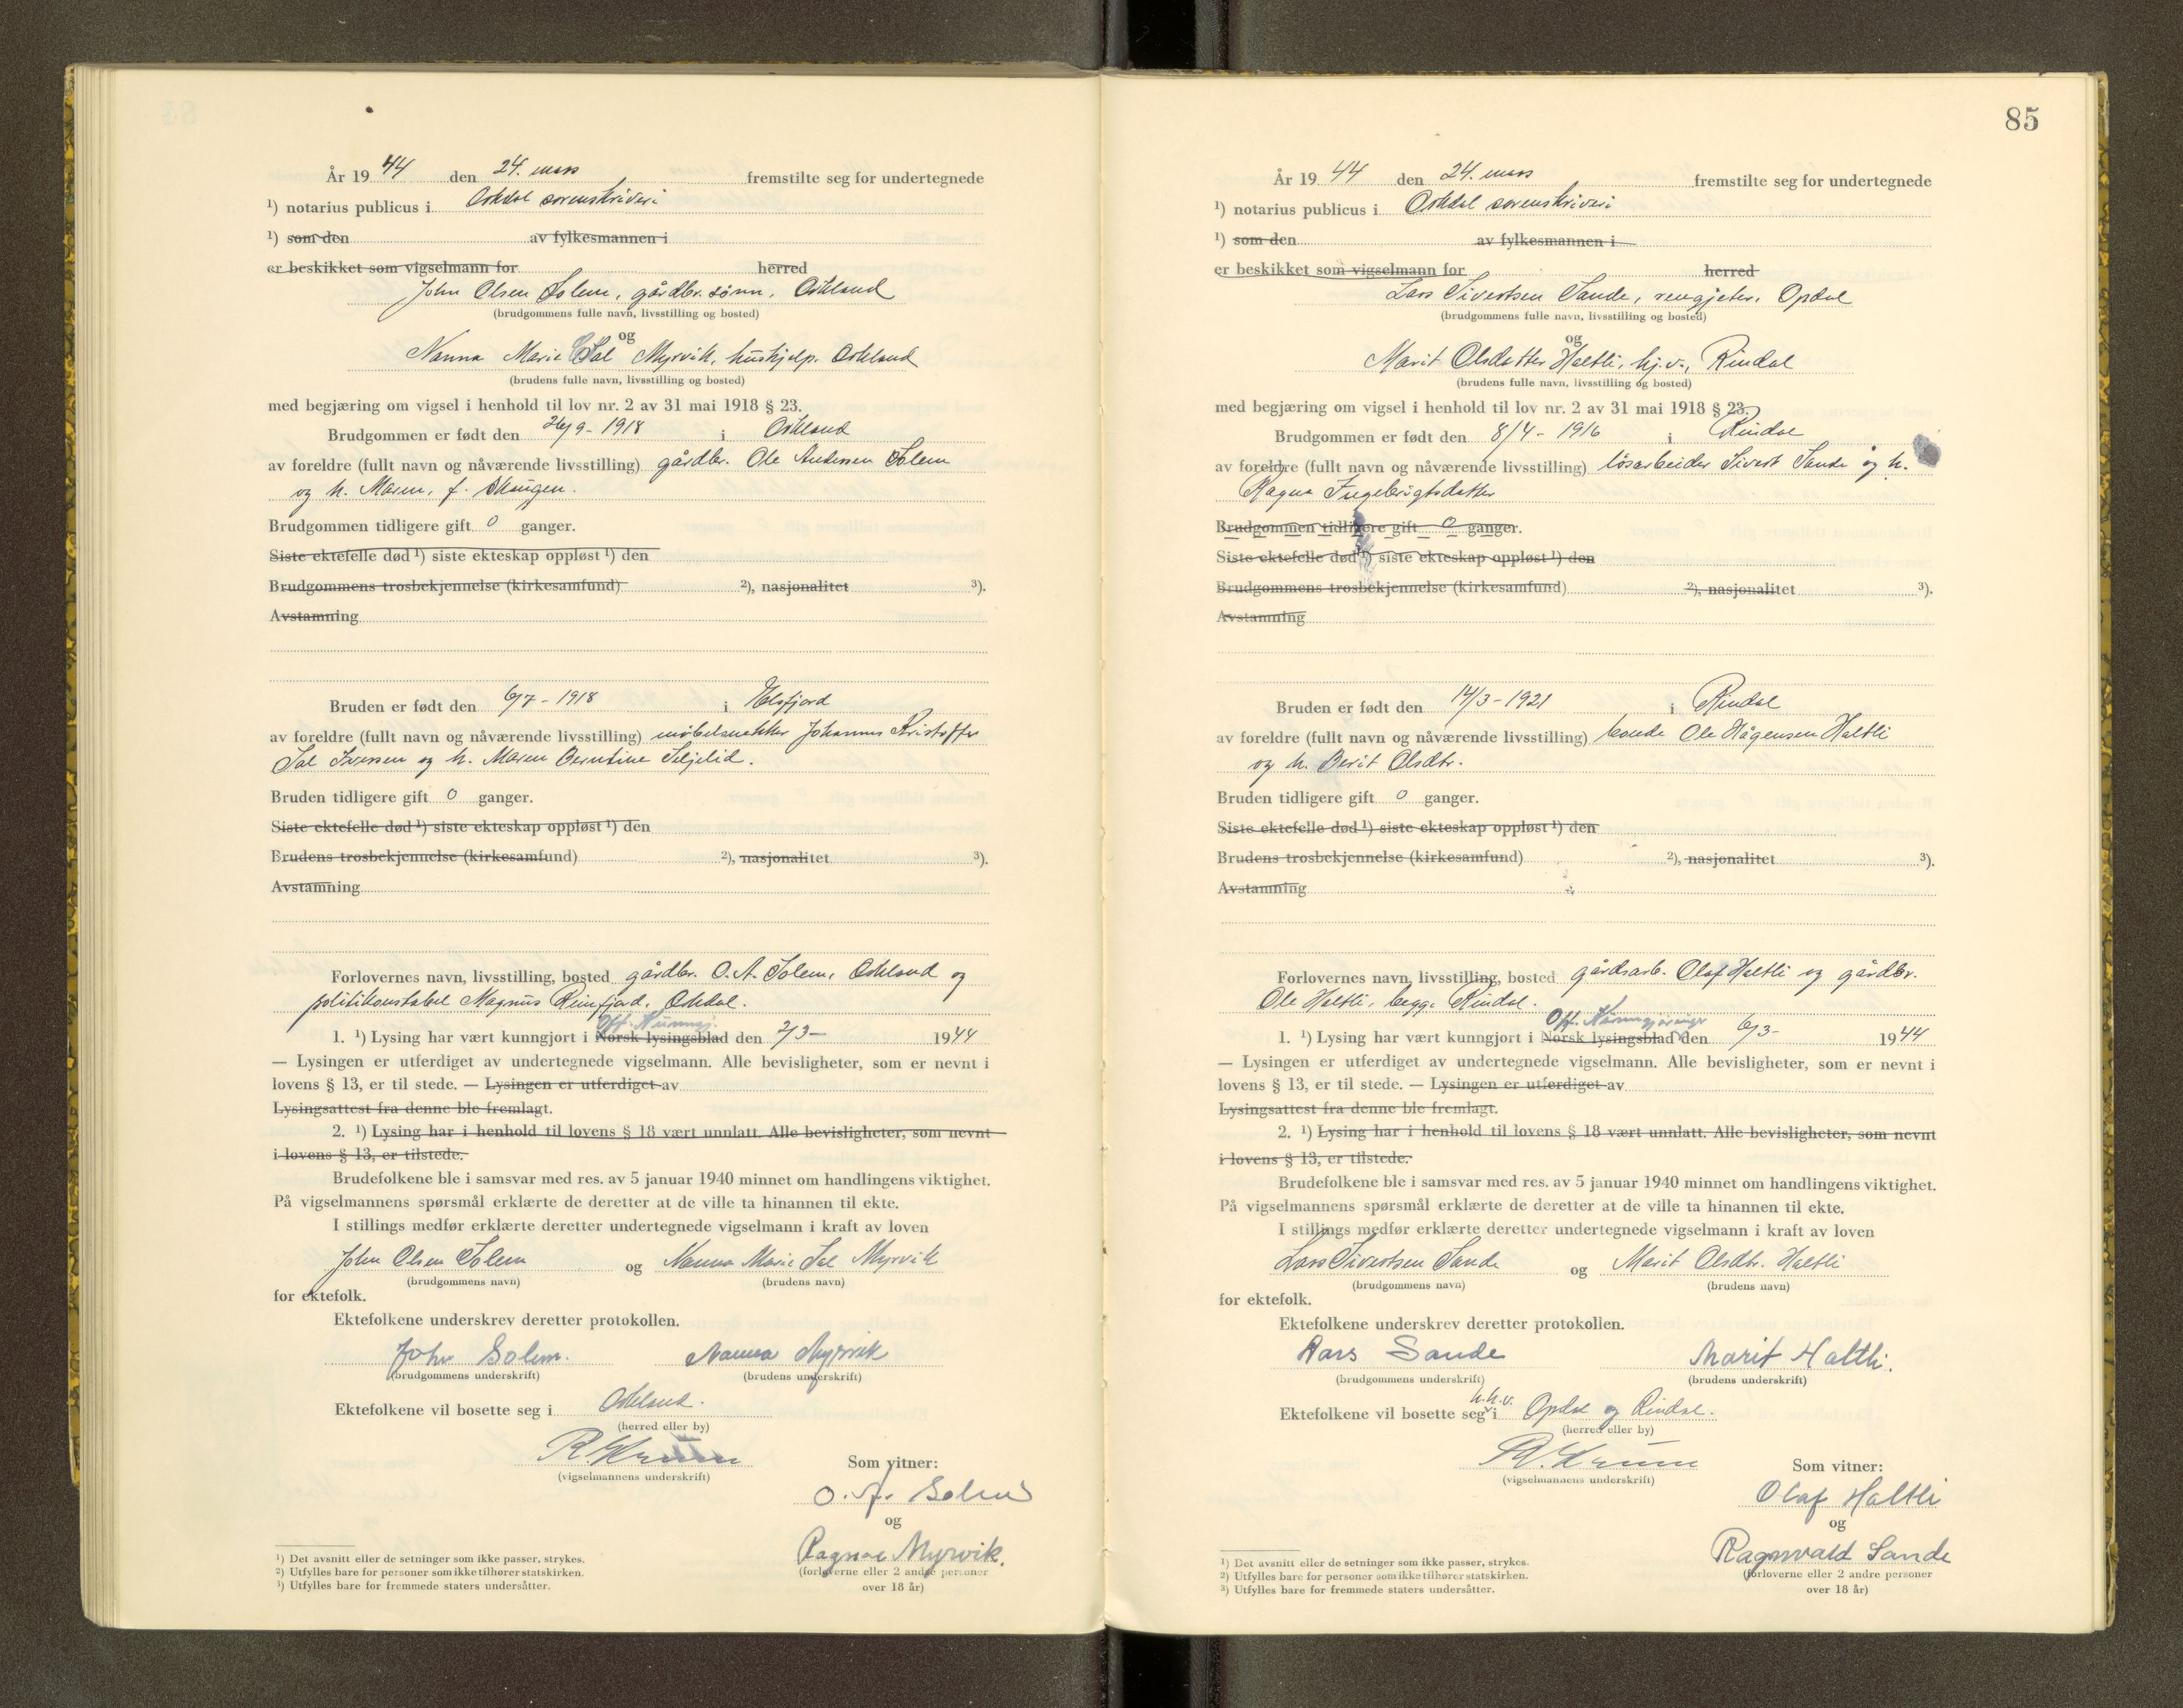 År 19 44 den 24. mars fremstilte seg for undertegnede
¹) notarius publicus i Orkdal sorenskriveri
¹) som den av fylkesmannen i
er beskikket som vigselmann for herred
John Olsen Solem, gårdbr. sønn, Orkland
(brudgommens fulle navn, livsstilling og bosted)
og
Nanna Marie Sal Myrvik, hushjelp, Orkland
(brudens fulle navn, livsstilling og bosted)
med begjæring om vigsel i henhold til lov nr. 2 av 31 mai 1918 § 23.
Brudgommen er født den 26/9 - 1918 i Orkland
av foreldre (fullt navn og nåværende livsstilling) gårdbr. Ole Andersen Solem
og h. Maren, f. Skaugen.
Brudgommen tidligere gift 0 ganger.
Siste ektefelle død ¹) siste ekteskap oppløst ¹) den
Brudgommens trosbekjennelse (kirkesamfund) ²), nasjonalitet ³).
Avstamning
Bruden er født den 6/7 - 1918 i Elsfjord
av foreldre (fullt navn og nåværende livsstilling) møbelsnekker Johannes Kristoffer
Sal Iversen og h. Maren Berntine Seljelid.
Bruden tidligere gift 0 ganger.
Siste ektefelle død ¹) siste ekteskap oppløst ¹) den
Brudens trosbekjennelse (kirkesamfund) ²), nasjonalitet ³).
Avstamning
Forlovernes navn, livsstilling, bosted gårdbr. O. A. Solem, Orkland og
politikonstabel Magnus Reinfjord, Orkdal.
Off. Kunngj.
1. ¹) Lysing har vært kunngjort i Norsk lysingsblad den 2/3- 1944
— Lysingen er utferdiget av undertegnede vigselmann. Alle bevisligheter, som er nevnt i
lovens § 13, er til stede. — Lysingen er utferdiget av
Lysingsattest fra denne ble fremlagt.
2. ¹) Lysing har i henhold til lovens § 18 vært unnlatt. Alle bevisligheter, som nevnt
i lovens § 13, er tilstede.
Brudefolkene ble i samsvar med res. av 5 januar 1940 minnet om handlingens viktighet.
På vigselmannens spørsmål erklærte de deretter at de ville ta hinannen til ekte.
I stillings medfør erklærte deretter undertegnede vigselmann i kraft av loven
John Olsen Solem og Nanna Marie Sal Myrvik
(brudgommens navn) (brudens navn)
for ektefolk.
Ektefolkene underskrev deretter protokollen.
John Solem. Nanna Myrvik
(brudgommens underskrift) (brudens underskrift)
Ektefolkene vil bosette seg i Orkland.
(herred eller by)
(vigselmannens underskrift) Som vitner:
O. A. Solem
og
Ragnar Myrvik.
(forloverne eller 2 andre personer
over 18 år)
¹) Det avsnitt eller de setninger som ikke passer, strykes.
²) Utfylles bare for personer som ikke tilhører statskirken.
³) Utfylles bare for fremmede staters undersåtter.
85
År 19 44 den 24. mars fremstilte seg for undertegnede
¹) notarius publicus i Orkdal sorenskriveri
¹) som den av fylkesmannen i
er beskikket som vigselmann for herred
Lars Sivertsen Sande, rengjeter, Opdal
(brudgommens fulle navn, livsstilling og bosted)
og
Marit Olsdatter Haltli, hj.v., Rindal
(brudens fulle navn, livsstilling og bosted)
med begjæring om vigsel i henhold til lov nr. 2 av 31 mai 1918 § 23.
Brudgommen er født den 8/4 - 1916 i Rindal
av foreldre (fullt navn og nåværende livsstilling) løsarbeider Sivert Sande og h.
Ragna Ingebrigtsdatter
Brudgommen tidligere gift 0 ganger.
Siste ektefelle død ¹) siste ekteskap oppløst ¹) den
Brudgommens trosbekjennelse (kirkesamfund) ²), nasjonalitet ³).
Avstamning
Bruden er født den 14/3 - 1921 i Rindal
av foreldre (fullt navn og nåværende livsstilling) bonde Ole Hågensen Haltli
og h. Berit Olsdtr.
Bruden tidligere gift 0 ganger.
Siste ektefelle død ¹) siste ekteskap oppløst ¹) den
Brudens trosbekjennelse (kirkesamfund) ²), nasjonalitet ³).
Avstamning
Forlovernes navn, livsstilling, bosted gårdsarb. Olaf Haltli og gårdbr.
Ole Haltli, begge Rindal.
Off. Kunngjøringer
1. ¹) Lysing har vært kunngjort i Norsk lysingsblad den 6/3- 1944
— Lysingen er utferdiget av undertegnede vigselmann. Alle bevisligheter, som er nevnt i
lovens § 13, er til stede. — Lysingen er utferdiget av
Lysingsattest fra denne ble fremlagt.
2. ¹) Lysing har i henhold til lovens § 18 vært unnlatt. Alle bevisligheter, som nevnt
i lovens § 13, er tilstede.
Brudefolkene ble i samsvar med res. av 5 januar 1940 minnet om handlingens viktighet.
På vigselmannens spørsmål erklærte de deretter at de ville ta hinannen til ekte.
I stillings medfør erklærte deretter undertegnede vigselmann i kraft av loven
Lars Sivertsen Sande og Marit Olsdtr. Haltli
(brudgommens navn) (brudens navn)
for ektefolk.
Ektefolkene underskrev deretter protokollen.
Lars Sande Marit Haltli.
(brudgommens underskrift) (brudens underskrift)
h.h.v.
Ektefolkene vil bosette seg i Opdal og Rindal.
(herred eller by)
(vigselmannens underskrift) Som vitner:
Olaf Haltli
og
Ragnvald Sande
(forloverne eller 2 andre personer
over 18 år)
¹) Det avsnitt eller de setninger som ikke passer, strykes.
²) Utfylles bare for personer som ikke tilhører statskirken.
³) Utfylles bare for fremmede staters undersåtter.